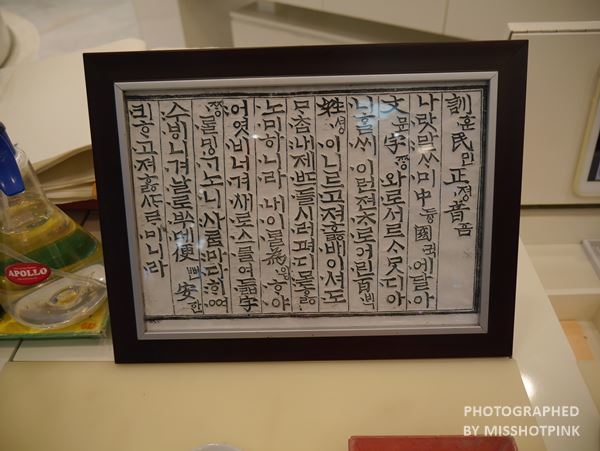 訓훈民민正졍音음
나랏말ᄊᆞ미中듕國귁에달아
文문字ᄍᆞᆼ와로서르ᄉᆞᄆᆞᆺ디아
니ᄒᆞᆯᄊᆡ이런젼ᄎᆞ로어린百ᄇᆡᆨ
姓셩이니르고져호ᇙ배이셔도
ᄆᆞᄎᆞᆷ내제ᄠᅳ들시러펴디몯ᄒᆞᇙ
노미하니라내이ᄅᆞᆯ爲윙ᄒᆞ야
어엿비너겨새로스믈여듧字
ᄍᆞᆼᄅᆞᆯᄆᆡᇰᄀᆞ노니사ᄅᆞᆷ마다ᄒᆡᅇᅧ
수ᄫᅵ니겨날로ᄡᅮ메便뼌安한
킈ᄒᆞ고져ᄒᆞᇙᄯᆞᄅᆞ미니라
APOLLO
PHOTOGRAPHED
BY MISSHOTPINK